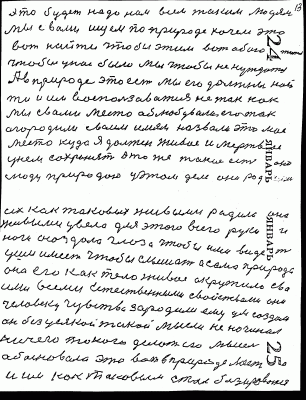 это будет надо нам всем таким людям 13
мы с вами ищем по природе ночем это
вот найти чтобы этим вот обого
чтобы у нас было мы чтобы не нуждались
А в природе это ест мы его должны най
ти и им воспользоватися не так как
мы с вами место облюбовали его так
огородили своим имям назвали это мое
место куда я должен живое и мертвое
унем сохранят это же такие ест
люди природою у этом дел она родила
24
ЯНВАРЬ
ЯНВАРЬ
25
сих как таковых живыми родила она
живыми увела для этого всего руки и
ноги создала глаза чтобы ими видет
уши имеет чтобы слышат а само природа
она его как тело живое окружила сво
ими всеми естественными свойствами она
человеку чувства зародила ему ум создала
он без усякой такой мысли не начинал
ничего такого делат его мысел
обановала это вот в природе
и им как таковым стал базироватся